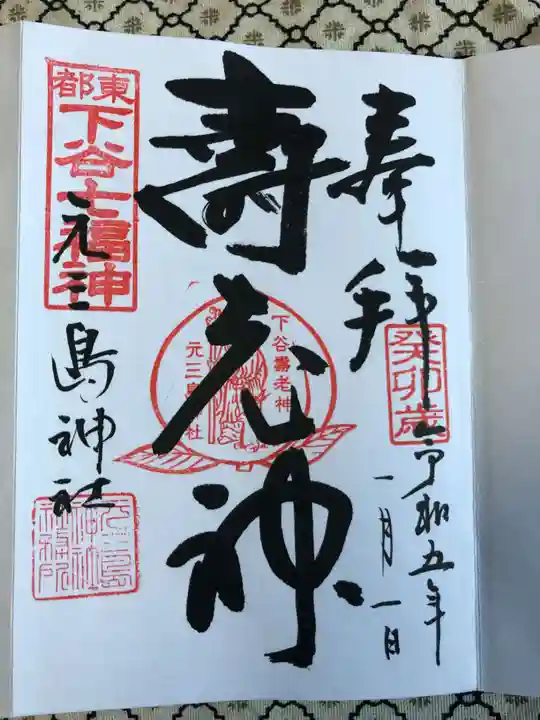 奉拝
癸卯歳
令和五年
一月一日
壽老神
下谷壽老神
元三島神社
東都
下谷七福神
元三島神社
元三島神社社務所